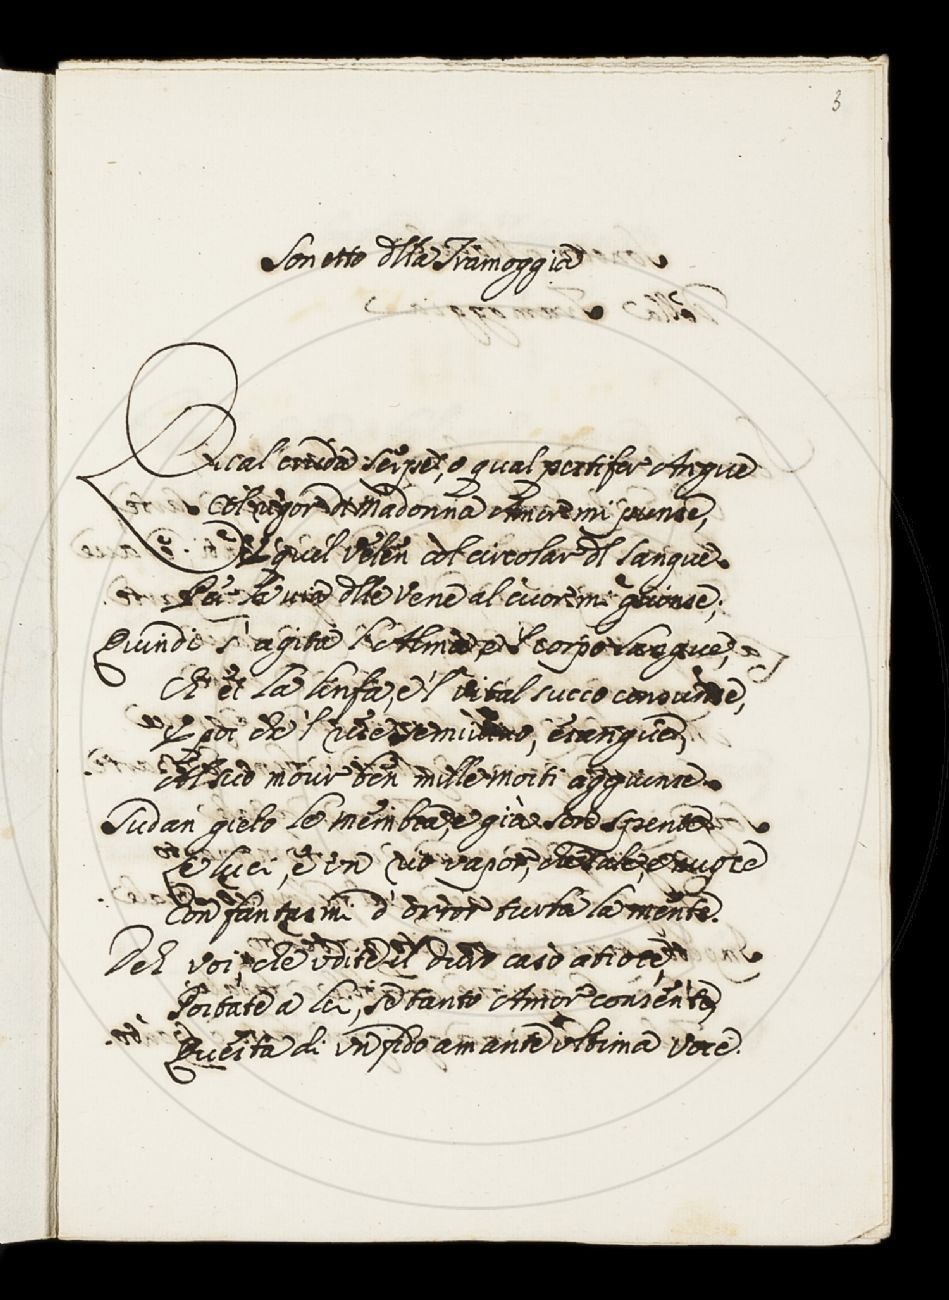 3
Sonetto dlla Tramoggia
Qual cruda serpe, o qual pestifer Angue
Col rigor di Madonna Amor mi punse,
E quel velen col circolar dl sangue
Per le vie dlle vene al cuor mi giunse;
Quindi s'agita l'Alma, e'l corpo langue,
Ch'ei la linfa, e'l vital succo consunse,
E poi che'l rese semivivo, esangue,
Al suo morir ben mille morti aggiunse.
Sudan gielo le membra, e già son spente
Le luci, e un rio vapor, e nuoce
Con fantasmi d'orror turba la mente.
Deh voi, che udite il duro caso atroce,
Portate a lei, se tanto Amor consente,
Questa di un fido amante ultima voce.